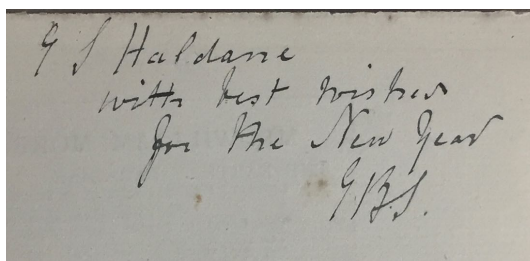 G S Haldane
with best wishes
for the New Year
G.B.S.